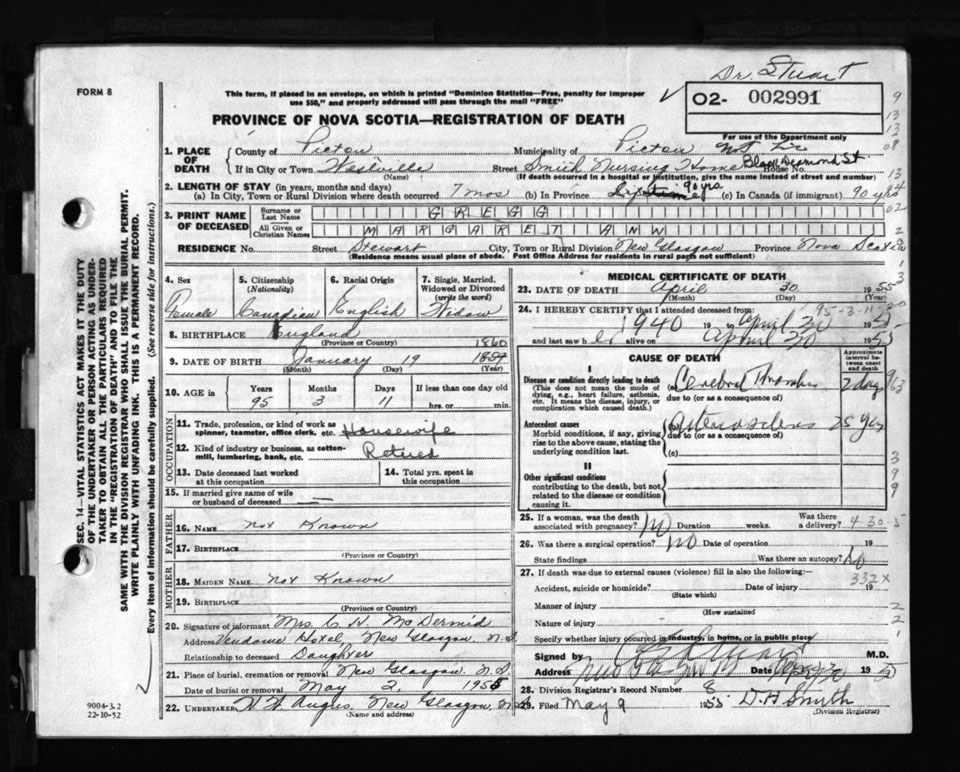 Dr. Stuart
FORM 8
This form, if placed in an envelope, on which is printed "Dominion Statistics—Free, penalty for improper
use $50," and properly addressed will pass through the mail "FREE"
O2- 002991
For use of the Department only
PROVINCE OF NOVA SCOTIA—REGISTRATION OF DEATH
1. PLACE OF DEATH
County of Pictou Municipality of Pictou
If in City or Town Westville Street Smith Nursing Home House No. Black Diamond St.
(Name) (If death occurred in a hospital or institution, give the name instead of street and number)
2. LENGTH OF STAY (in years, months and days)
(a) In City, Town or Rural Division where death occurred 7 mos (b) In Province 90 yrs. (c) In Canada (if immigrant) 90 yrs
3. PRINT NAME OF DECEASED
Surname or Last Name GREGG
All Given or Christian Names MARGARET ANN
RESIDENCE No. Street Stewart City, Town or Rural Division New Glasgow Province Nova Scotia
(Residence means usual place of abode. Post Office Address for residents in rural parts not sufficient)
4. Sex Female
5. Citizenship (Nationality) Canadian
6. Racial Origin English
7. Single, Married, Widowed or Divorced (write the word) Widow
8. BIRTHPLACE England
(Province or Country)
9. DATE OF BIRTH January 19 1860
(Month) (Day) (Year)
10. AGE in Years Months Days If less than one day old
95 3 11 hrs. or min.
OCCUPATION
11. Trade, profession, or kind of work as spinner, teamster, office clerk, etc. Housewife
12. Kind of industry or business, as cotton-mill, lumbering, bank, etc. Retired
13. Date deceased last worked at this occupation
14. Total yrs. spent in this occupation
15. If married give name of wife or husband of deceased —
FATHER
16. NAME not Known
17. BIRTHPLACE
(Province or Country)
MOTHER
18. MAIDEN NAME not Known
19. BIRTHPLACE
(Province or Country)
20. Signature of informant Mrs. C. H. McDermid
Address Vendome Hotel, New Glasgow, N.S.
Relationship to deceased Daughter
21. Place of burial, cremation or removal New Glasgow, N.S.
Date of burial or removal May 2, 1955
22. UNDERTAKER H. W. Angus, New Glasgow, N.S.
(Name and address)
MEDICAL CERTIFICATE OF DEATH
23. DATE OF DEATH April 30 1955
(Month) (Day) (Year)
95-3-11
24. I HEREBY CERTIFY that I attended deceased from:
1940 19 to April 30 1955
and last saw her alive on April 30 1955
CAUSE OF DEATH
Approximate interval between onset and death
I
Disease or condition directly leading to death (a) Cerebral Thrombus 2 days
(This does not mean the mode of dying, e.g., heart failure, asthenia, etc. It means the disease, injury, or complication which caused death.)
due to (or as a consequence of)
Antecedent causes (b) Arteriosclerosis 25 yrs
Morbid conditions, if any, giving rise to the above cause, stating the underlying condition last.
due to (or as a consequence of)
(c)
II
Other significant conditions
contributing to the death, but not related to the disease or condition causing it.
25. If a woman, was the death associated with pregnancy? No Duration weeks. Was there a delivery?
4-30-5
26. Was there a surgical operation? No Date of operation 19
State findings Was there an autopsy? No
27. If death was due to external causes (violence) fill in also the following:—
332X
Accident, suicide or homicide? Date of injury 19
(State which)
Manner of injury
(How sustained
Nature of injury
Specify whether injury occurred in industry, in home, or in public place
Signed by M.D.
Address Date 195
28. Division Registrar's Record Number 8
29. Filed May 9 1955 D. H. Smith
(Division Registrar)
SEC. 14—VITAL STATISTICS ACT MAKES IT THE DUTY
OF THE UNDERTAKER OR PERSON ACTING AS UNDER-
TAKER TO OBTAIN ALL THE PARTICULARS REQUIRED
IN THE "REGISTRATION OF DEATH" AND TO FILE THE
SAME WITH THE DIVISION REGISTRAR WHO SHALL ISSUE THE BURIAL PERMIT.
WRITE PLAINLY WITH UNFADING INK. THIS IS A PERMANENT RECORD.
Every item of information should be carefully supplied. (See reverse side for instructions.)
9004-3.2
22-10-52